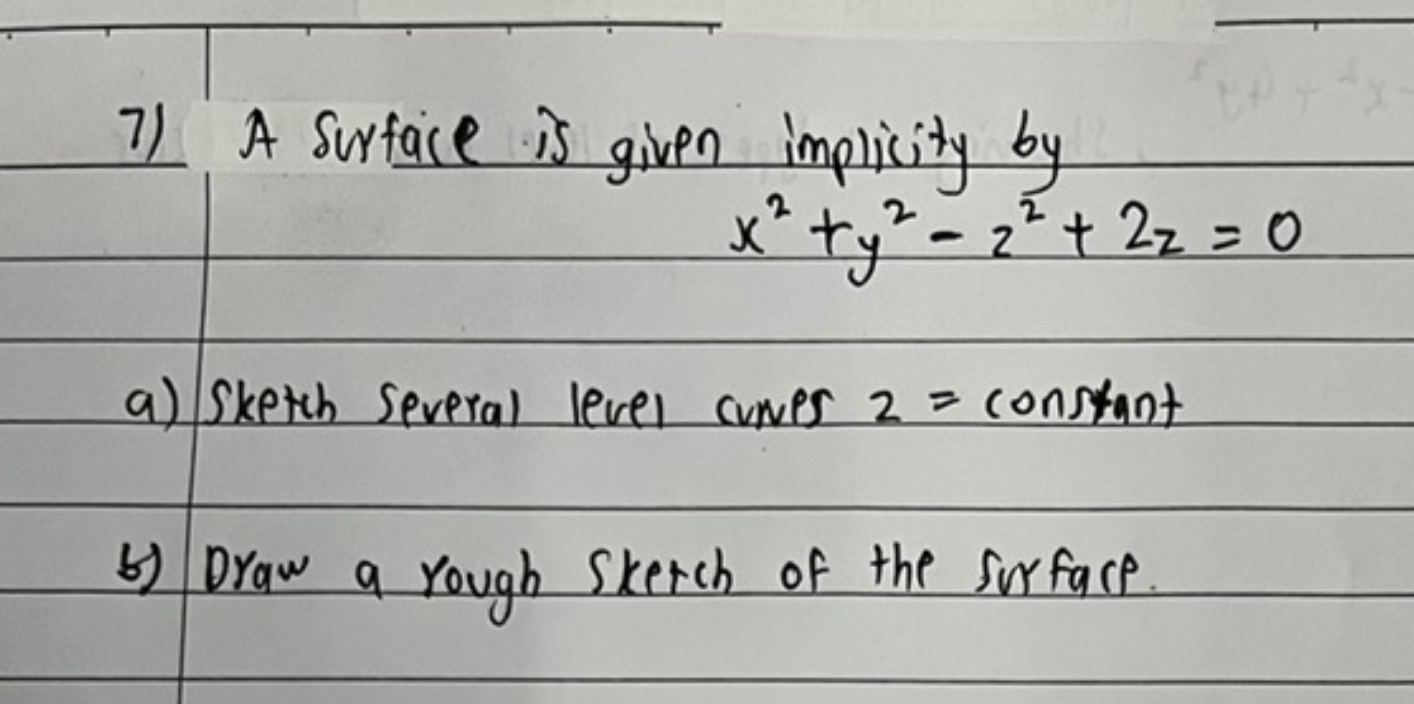 7) A surface is given implicity by
x² + y² - z² + 2z = 0
a) Sketch several level curves z = constant
b) Draw a rough sketch of the surface.